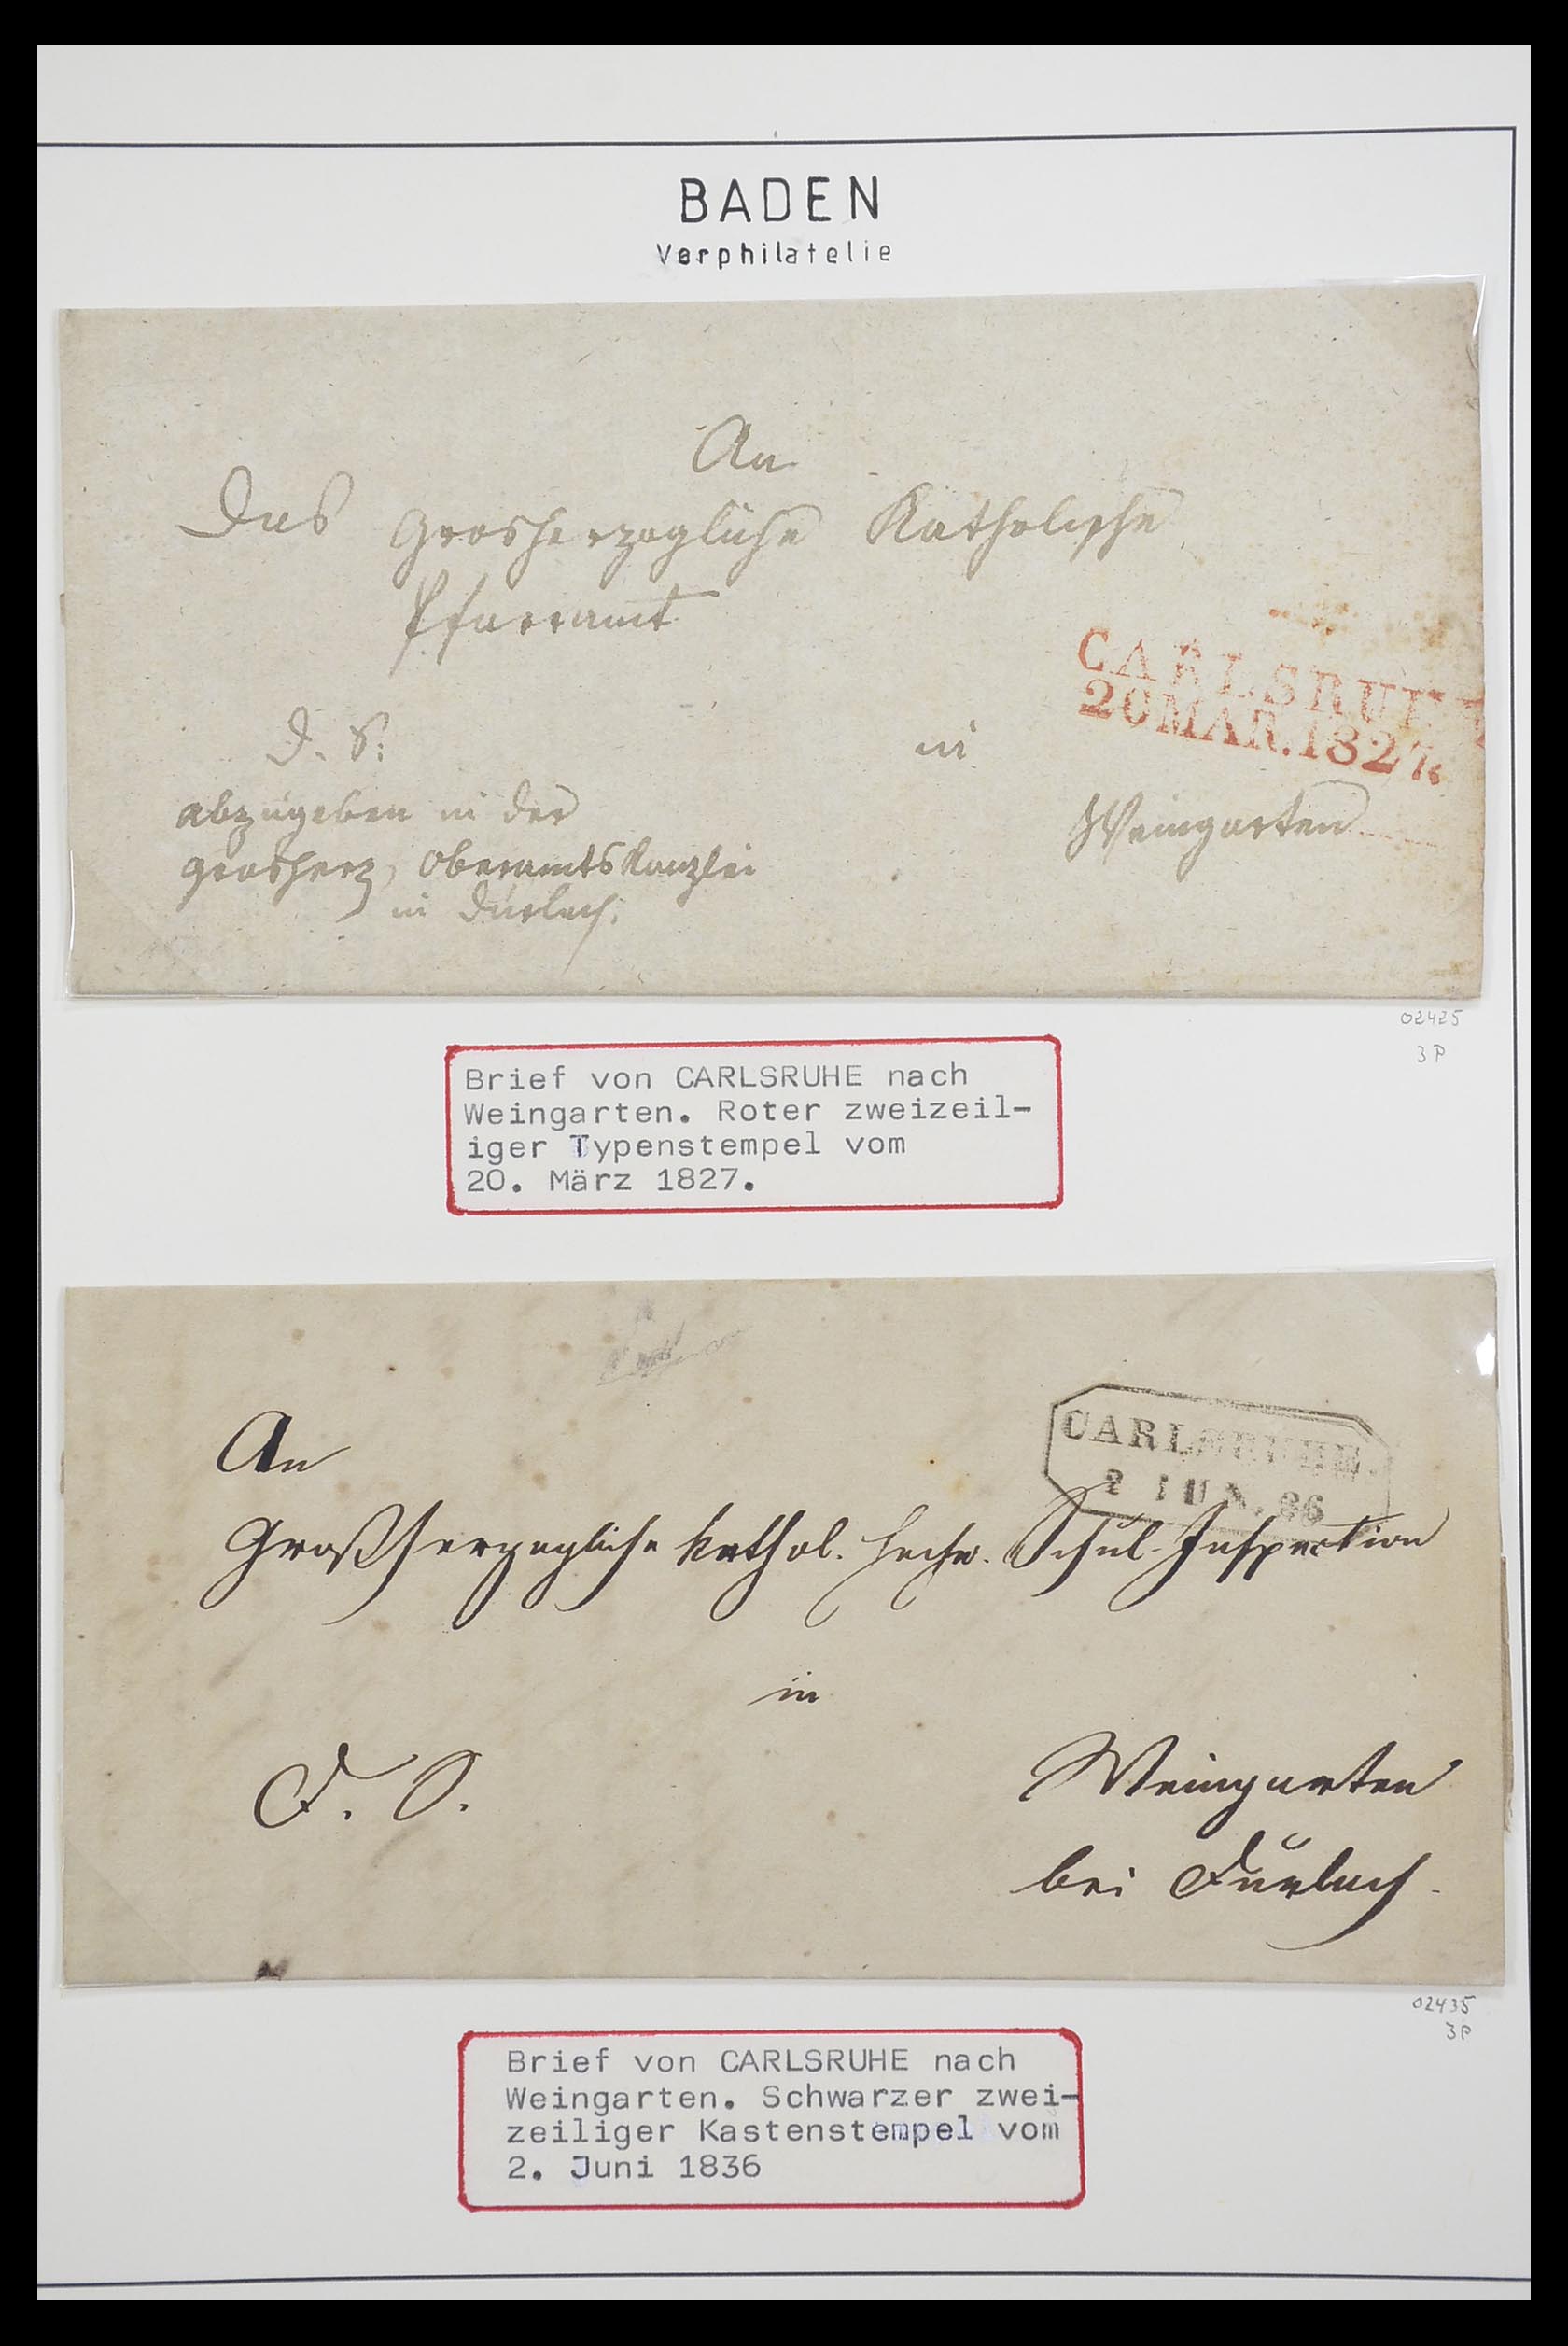 BADEN
Vorphilatelie
An
Das Grosherzogliche Katholische
Pfarramt
CARLSRUHE
20 MAR. 1827
D. S:
in
abzugeben in der
Weingarten
grosherz, Oberamts Kanzlei
in Durlach:
02425
3 P
Brief von CARLSRUHE nach
Weingarten. Roter zweizeil-
iger Typenstempel vom
20. März 1827.
CARLSRUHE
2 IUN. 36
An
Großherzogliche kathol. Schul-Inspection
in
D. S.
Weingarten
bei Durlach.
02435
3P
Brief von CARLSRUHE nach
Weingarten. Schwarzer zwei-
zeiliger Kastenstempel vom
2. Juni 1836